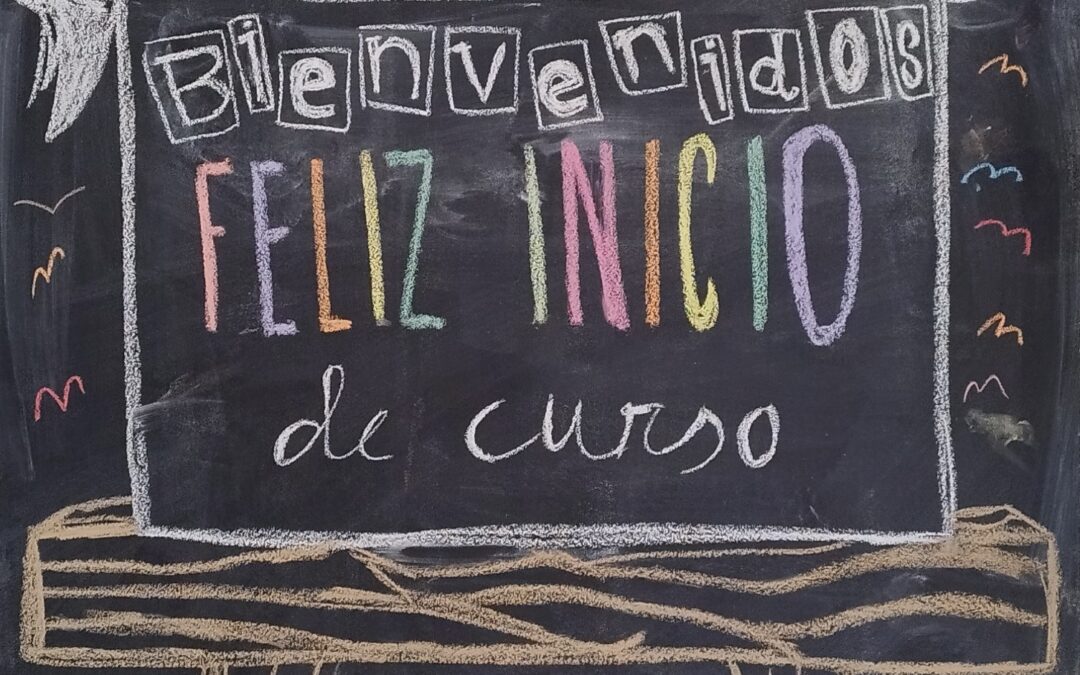 Bienvenidos
FELIZ INICIO
de curso